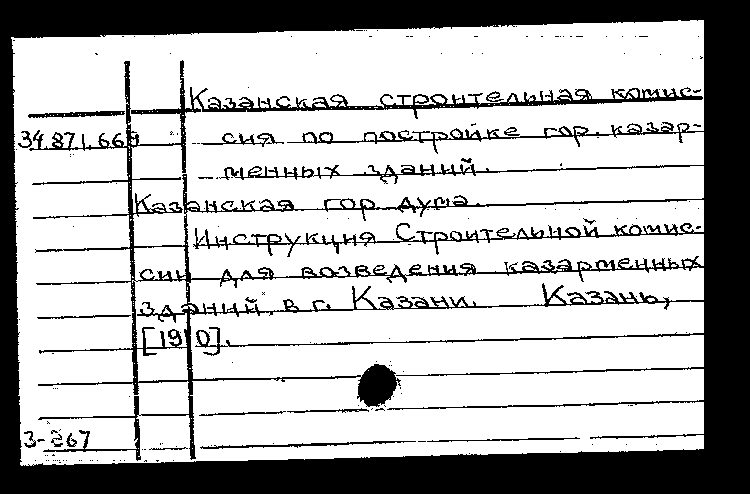 Казанская строительная комис-
34.871.669 сия по постройке гор. казар-
менных зданий.
Казанская гор. дума.
Инструкция Строительной комис-
сии для возведения казарменных
зданий в г. Казани. Казань,
[1910].
3-267